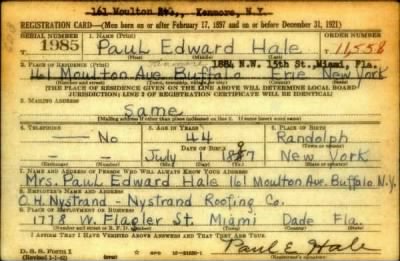 161 Moulton Ave., Kenmore, N.Y.
REGISTRATION CARD—(Men born on or after February 17, 1897 and on or before December 31, 1921)
SERIAL NUMBER 1. NAME (Print) ORDER NUMBER
1985 Paul Edward Hale 11555
1884 N.W. 15th St., Miami, Fla.
2. PLACE OF RESIDENCE (Print)
161 Moulton Ave Buffalo Erie New York
(THE PLACE OF RESIDENCE GIVEN ON THE LINE ABOVE WILL DETERMINE LOCAL BOARD
JURISDICTION; LINE 2 OF REGISTRATION CERTIFICATE WILL BE IDENTICAL)
3. MAILING ADDRESS
Same
4. TELEPHONE 5. AGE IN YEARS 6. PLACE OF BIRTH
No 44 Randolph
DATE OF BIRTH
July 1897 New York
7. NAME AND ADDRESS OF PERSON WHO WILL ALWAYS KNOW YOUR ADDRESS
Mrs. Paul Edward Hale 161 Moulton Ave. Buffalo N.Y.
8. EMPLOYER'S NAME AND ADDRESS
O.H. Nystrand - Nystrand Roofing Co.
9. PLACE OF EMPLOYMENT OR BUSINESS
1778 W. Flagler St. Miami Dade Fla.
I AFFIRM THAT I HAVE VERIFIED ABOVE ANSWERS AND THAT THEY ARE TRUE.
D. S. S. FORM 1 GPO
Paul E. Hale